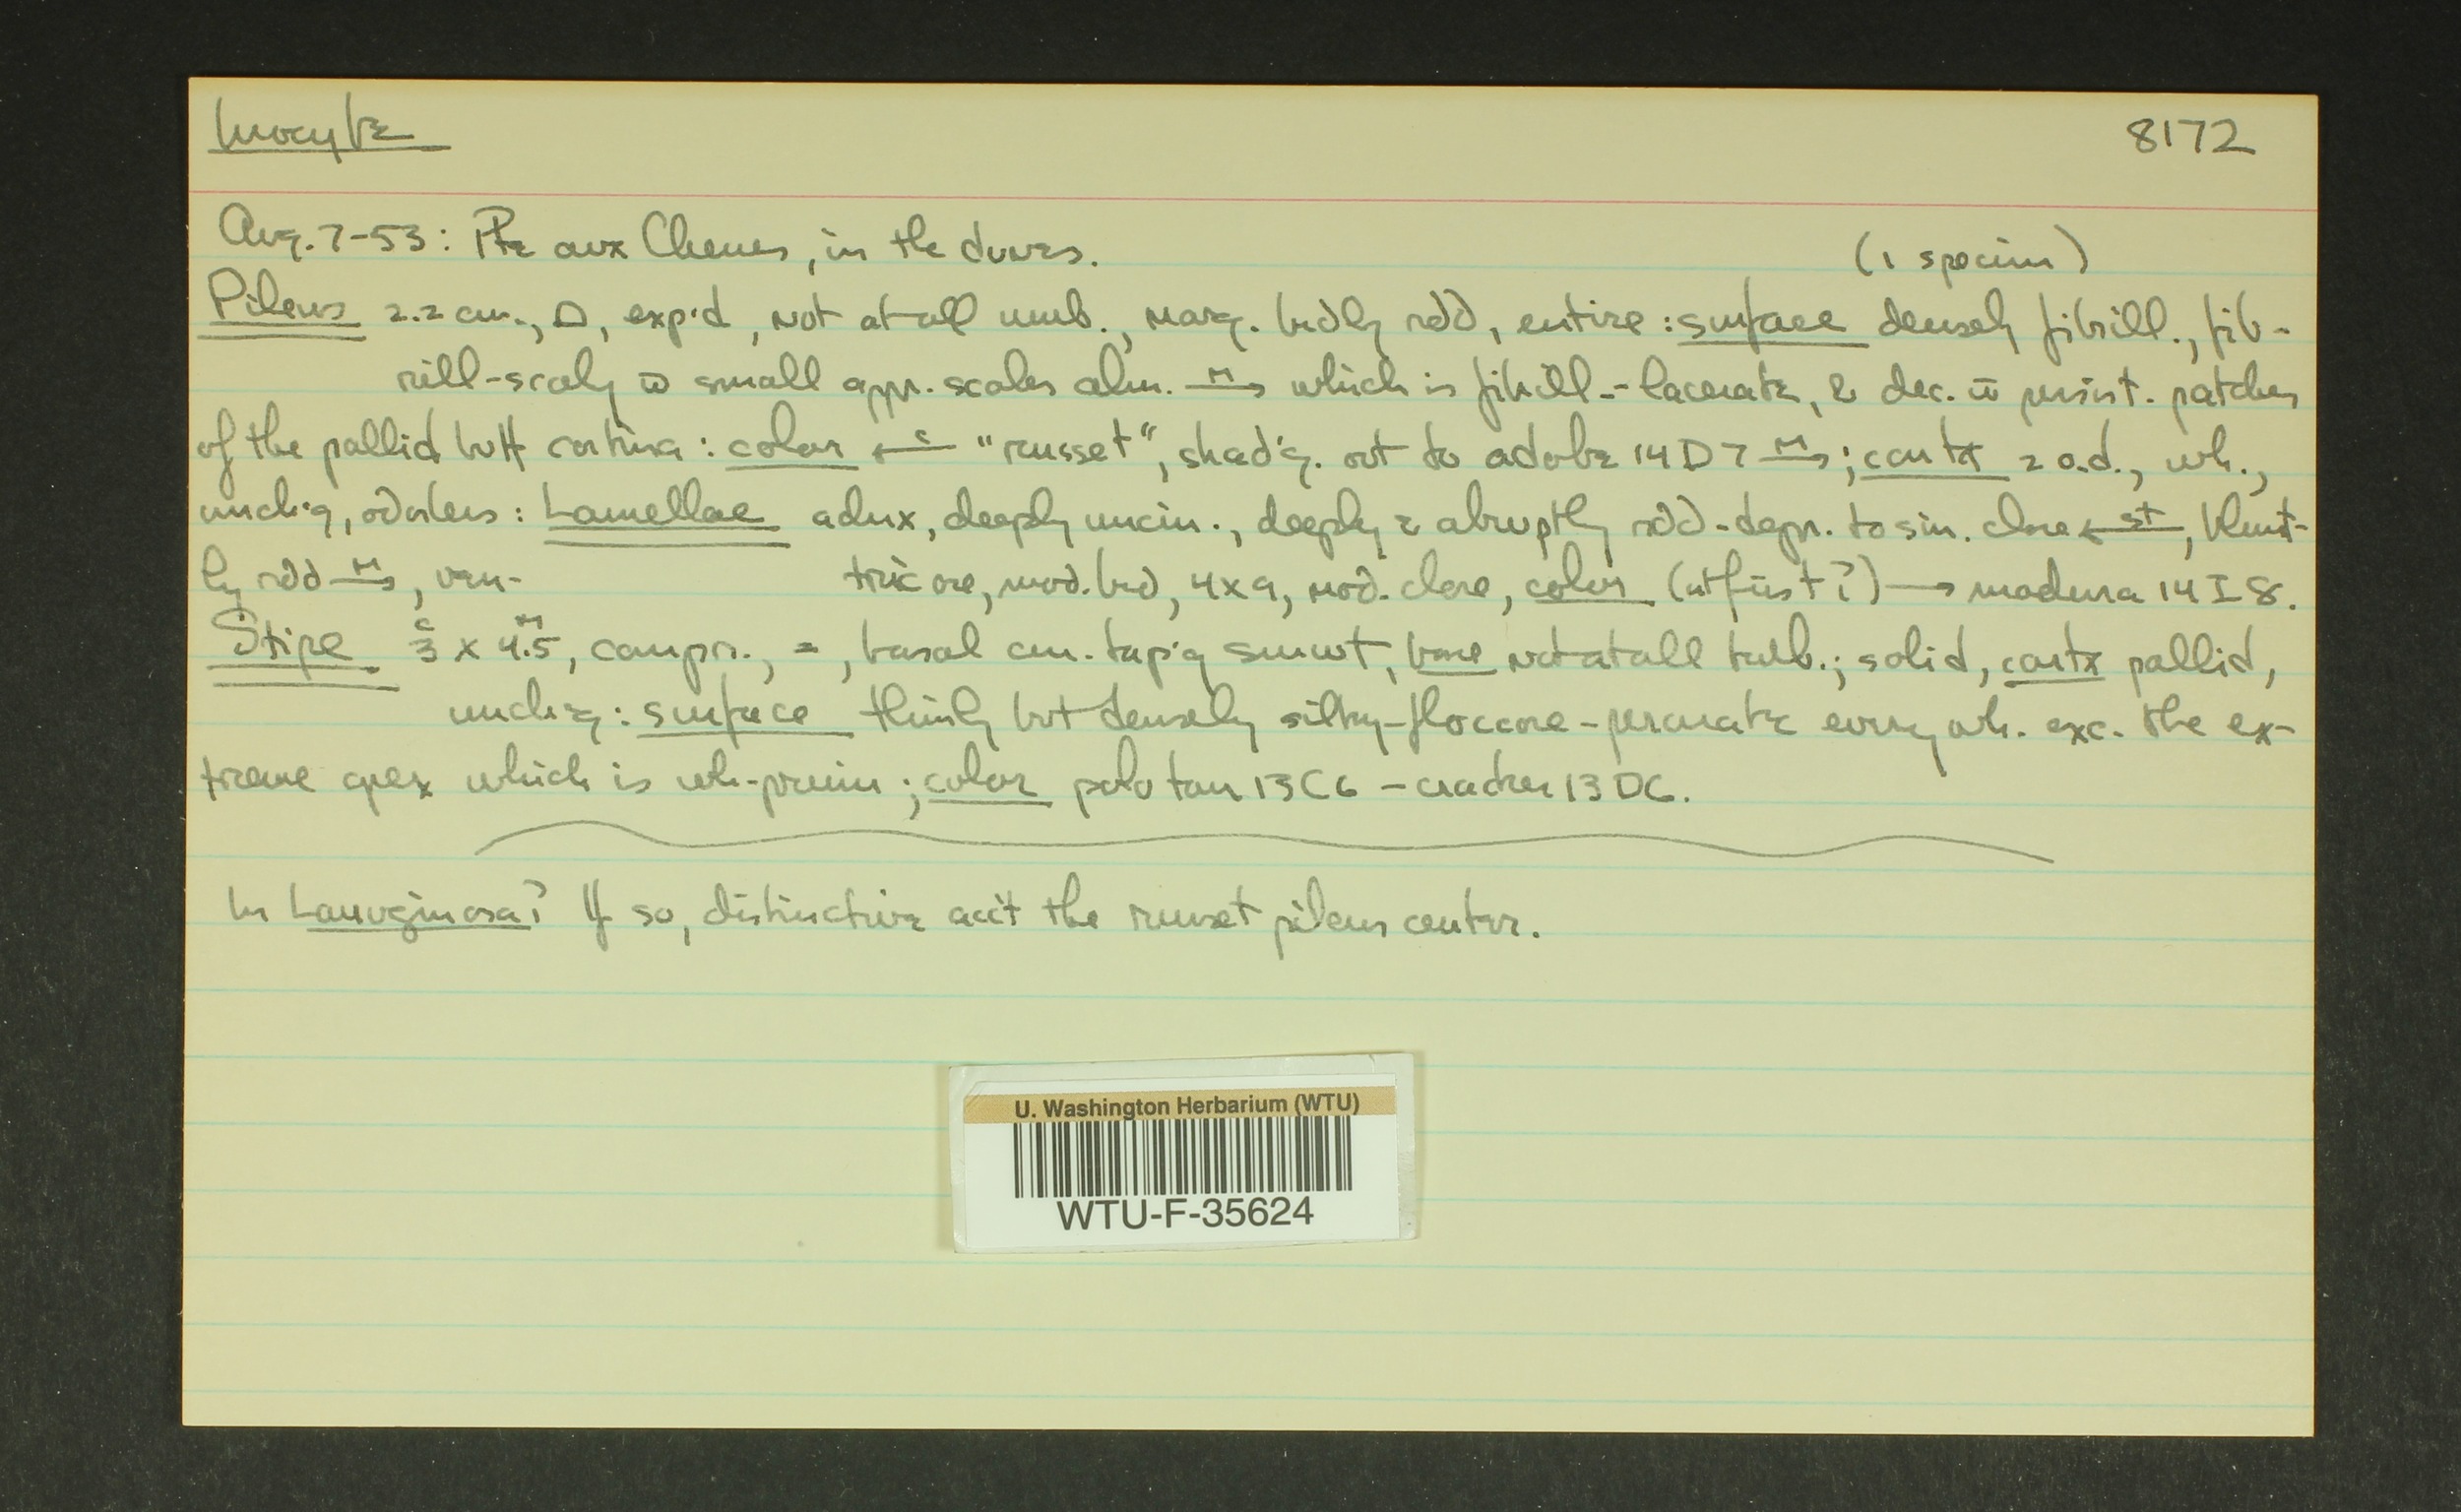 Inocybe
8172
Aug. 7-53: Pte aux Chenes, in the dunes.
(1 specim)
Pileus 2.2 cm., exp'd, not at all umb., marg. brdly rdd, entire: surface densely fibrill., fib-
rill-scaly w small appr. scales alm. M→ which is fibrill-lacerate, & dec. w persist. patches
of the pallid buff cortina: color ←c "russet", shad'g. out to adobe 14D7 M→; contx 2 o.d., wh.,
unch'g, odorless: Lamellae adnx, deeply uncin., deeply & abruptly rdd-depr. to sin. close ←st, blunt-
ly rdd M→, ven-
tricose, mod. brd, 4x9, mod. close, color (at first?) → madura 14I8.
Stipe c 3 x M 4.5, compr., =, basal cm. tap'g smwt, base not at all bulb.; solid, contx pallid,
unch'g: surface thinly but densely silky-floccose-peronate everywh. exc. the ex-
treme apex which is wh-pruin; color polo tan 13C6 - cracker 13D6.
In Lanuginosa? If so, distinctive acc't the russet pileus center.
U. Washington Herbarium (WTU)
WTU-F-35624